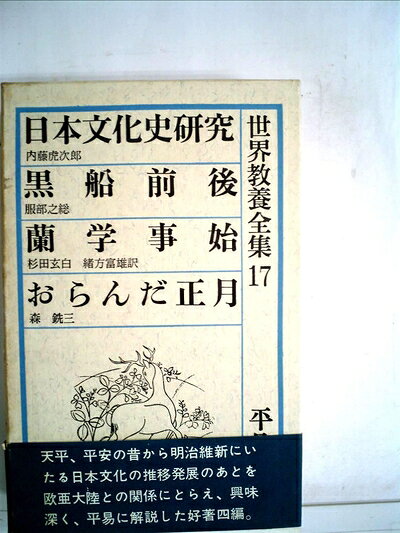 世界教養全集17
日本文化史研究
内藤虎次郎
黒船前後
服部之総
蘭学事始
杉田玄白 緒方富雄訳
おらんだ正月
森銑三
平
天平、平安の昔から明治維新にい
たる日本文化の推移発展のあとを
欧亜大陸との関係にとらえ、興味
深く、平易に解説した好著四編。